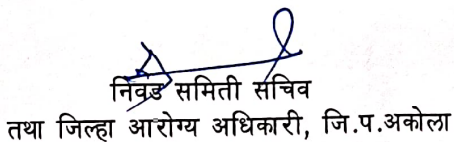 निवड समिती सचिव
तथा जिल्हा आरोग्य अधिकारी, जि.प.अकोला